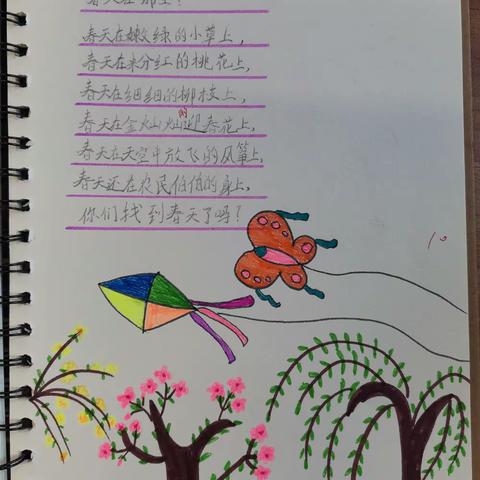 春天在哪里?
春天在嫩绿的小草上,
春天在米分红的桃花上,
春天在细细的柳枝上,
春天在金灿灿的迎春花上,
春天在天空中放飞的风筝上,
春天还在农民伯伯的身上,
你们找到春天了吗?
10